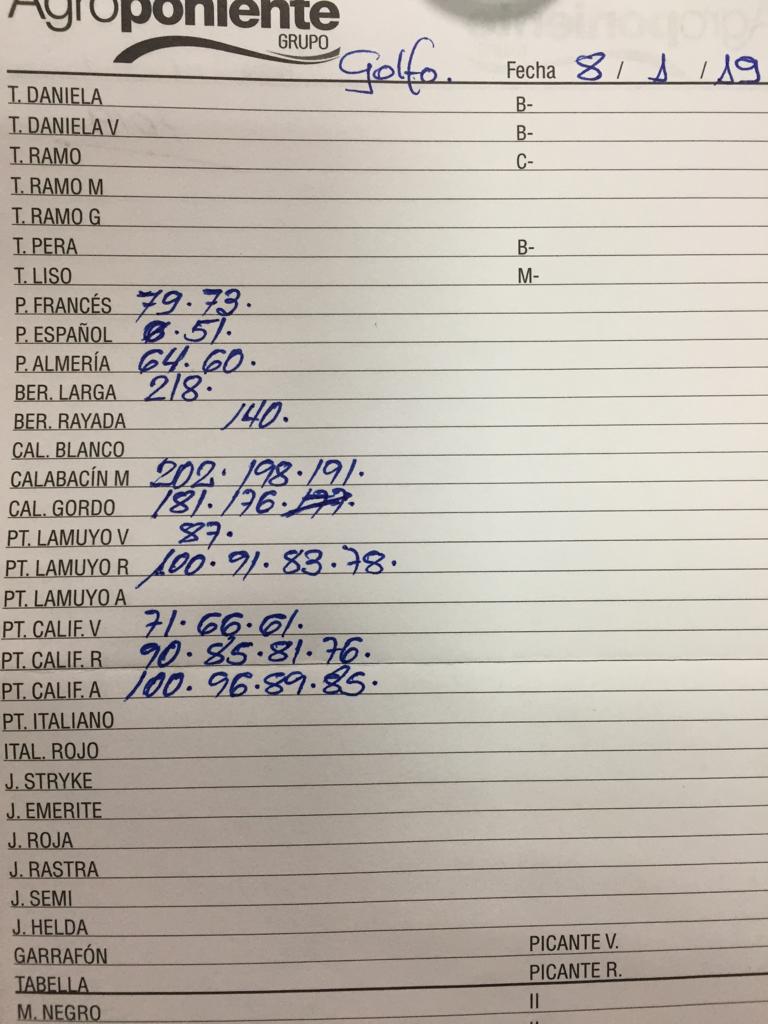 Agroponiente
GRUPO
Golfo. Fecha 8 / 1 / 19
T. DANIELA B-
T. DANIELA V B-
T. RAMO C-
T. RAMO M
T. RAMO G
T. PERA B-
T. LISO M-
P. FRANCÉS 79. 73.
P. ESPAÑOL 51.
P. ALMERÍA 64. 60.
BER. LARGA 218.
BER. RAYADA 140.
CAL. BLANCO
CALABACÍN M 202. 198. 191.
CAL. GORDO 181. 176.
PT. LAMUYO V 87.
PT. LAMUYO R 100. 91. 83. 78.
PT. LAMUYO A
PT. CALIF. V 71. 66. 61.
PT. CALIF. R 90. 85. 81. 76.
PT. CALIF. A 100. 96. 89. 85.
PT. ITALIANO
ITAL. ROJO
J. STRYKE
J. EMERITE
J. ROJA
J. RASTRA
J. SEMI
J. HELDA
GARRAFÓN PICANTE V.
TABELLA PICANTE R.
M. NEGRO II